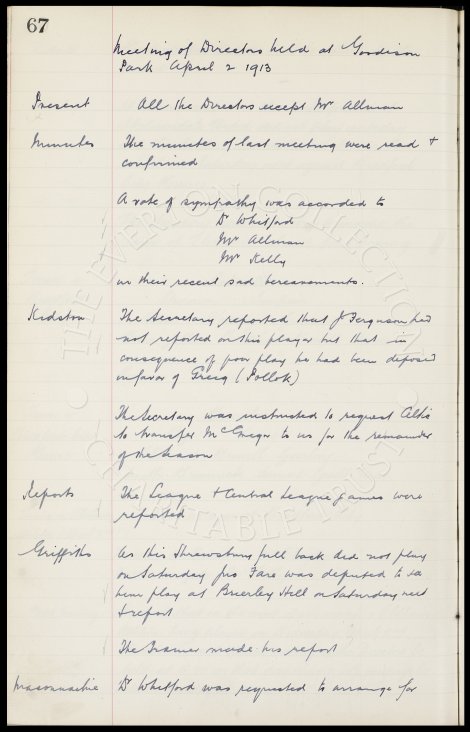 67
Meeting of Directors held at Goodison
Park April 2 1913
Present All the Directors except Mr Allman
Minutes The minutes of last meeting were read +
confirmed
A vote of sympathy was accorded to
Dr Whitford
Mr Allman
Mr Kelly
in their recent sad bereavements.
Kidston The Secretary reported that J Ferguson had
not reported on this player but that in
consequence of poor play he had been deposed
in favor of Greig (Pollok)
The Secretary was instructed to request Celtic
to transfer McGregor to us for the remainder
of the Season
Reports The League + Central League games were
reported
Griffiths As this Shrewsbury full back did not play
on Saturday Jno Fare was deputed to see
him play at Brierley Hill on Saturday next
+ report
The Trainer made his report
Maconnachie Dr Whitford was requested to arrange for
THE EVERTON COLLECTION
CHARITABLE TRUST